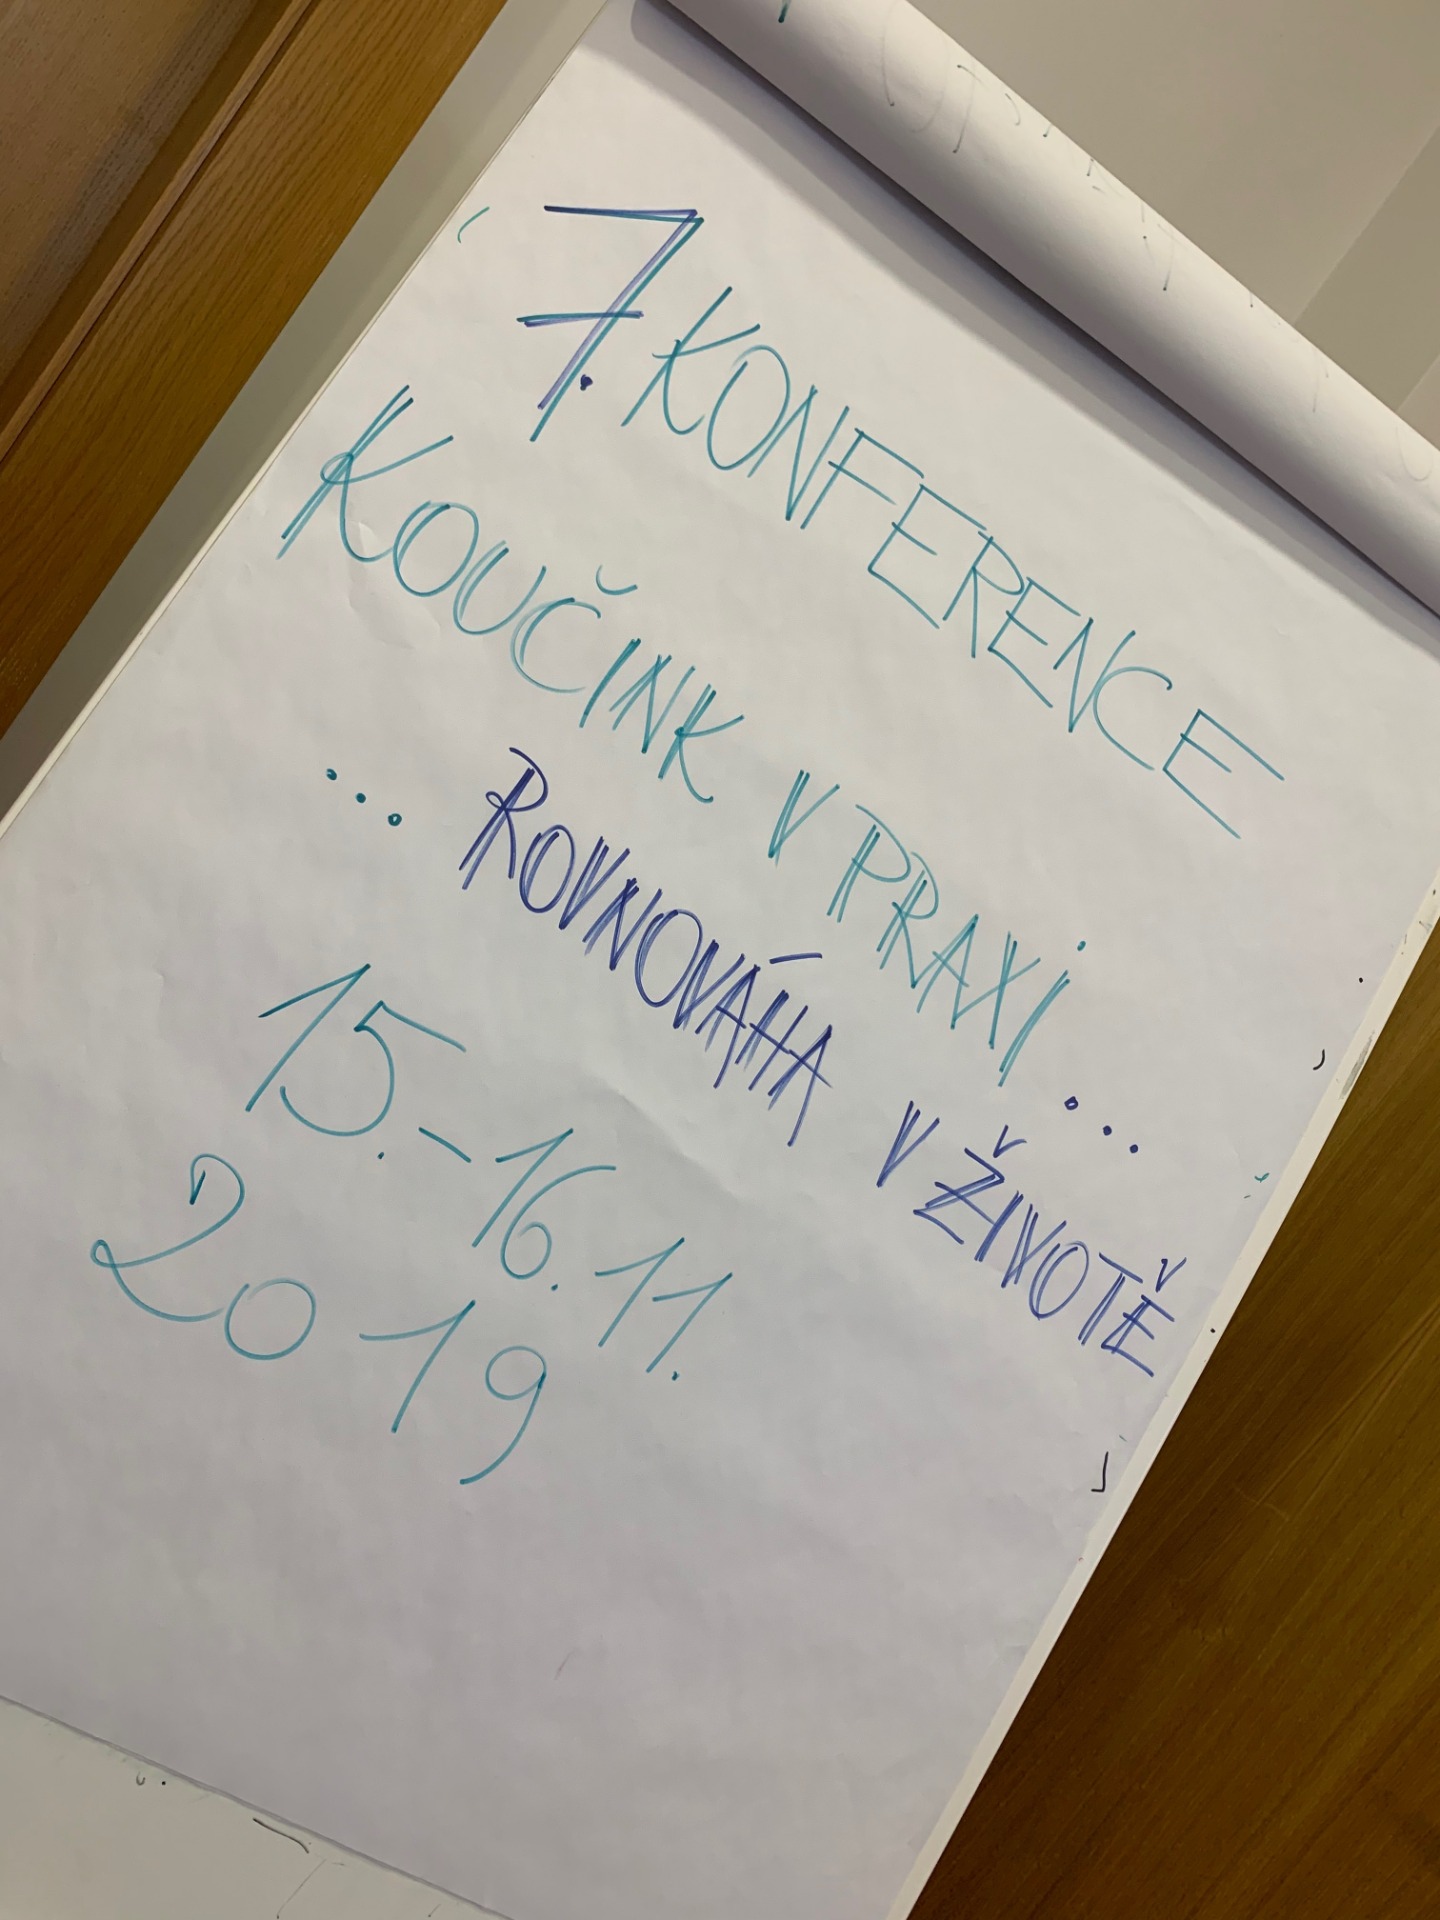 7. KONFERENCE
KOUČINK V PRAXI
... ROVNOVÁHA V ŽIVOTĚ ...
15.-16.11.
2019